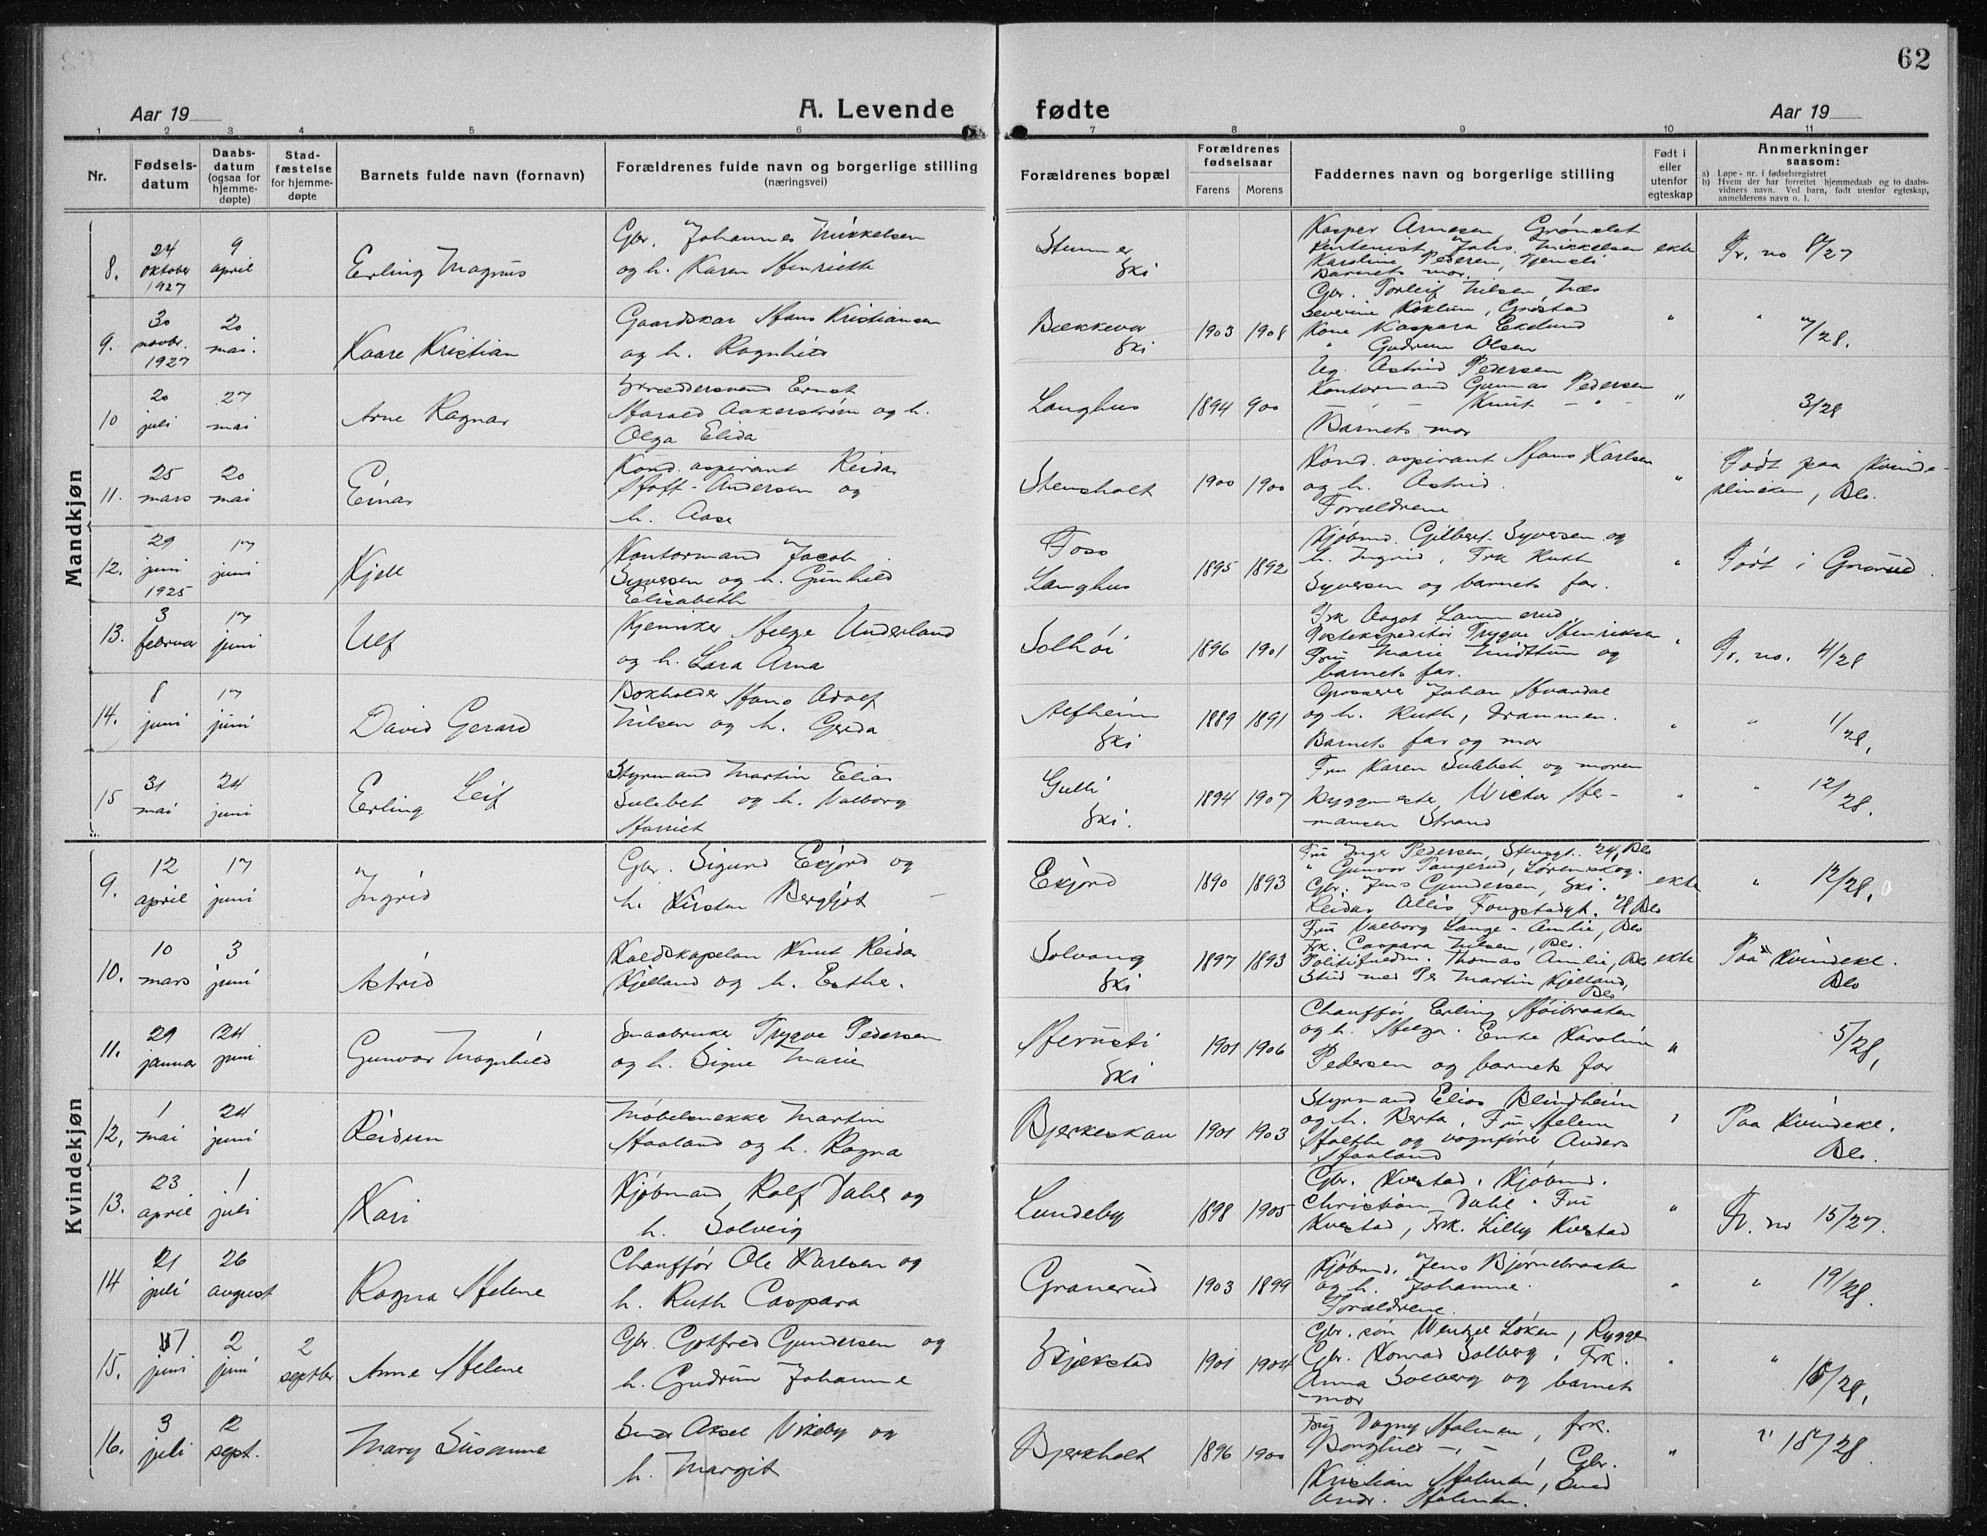 62
Aar 19
A. Levende
fødte
Aar 19
1 2 3 4 5 6 7 8 9 10 11
Nr.
Fødsels-
datum
Daabs-
datum
(ogsaa for
hjemme-
døpte)
Stad-
fæstelse
for hjemme-
døpte
Barnets fulde navn (fornavn)
Forældrenes fulde navn og borgerlige stilling
(næringsvei)
Forældrenes bopæl
Forældrenes
fødselsaar
Farens
Morens
Faddernes navn og borgerlige stilling
Født i
eller
utenfor
egteskap
Anmerkninger
saasom:
a) Løpe-nr. i fødselsregistret
b) Hvem der har forrettet hjemmedaab og to daabs-
vidners navn. Ved barn, født utenfor egteskap,
anmelderens navn o. l.
Mandkjøn
8.
24
oktober
1927
9
april
Erling Magnus
Gbr. Johannes Mikkelsen
og h. Karen Henriette
Ski
Kasper Arnesen
Johs. Mikkelsen
Karoline Pedersen,
Barnets mor.
ekte
Fr. no 8/27
9.
30
novbr.
1927
20
mai.
Kaare Kristian
Gaardskar Hans Kristiansen
og h. Ragnhild
Bækkevar
Ski
1903 1908
Gbr. Torleif Nilsen Næs
Severine
Kone Kaspara Ekelund
" Gudrun Olsen
"
" 7/28.
10
20
juli
27
mai
Arne Ragnar
Skræddersvend Ernst
Harald Aakerstrøm og h.
Olga Elida
Langhus
1894 900
Ug. Astrid Pedersen
Kontormand Gunnar Pedersen
— Knut — " —
Barnets mor
"
3/28
11.
25
mars
20
mai
Einar
Kond. aspirant Reidar
Hoff-Andersen og
h. Aase
Stensholt
1900 1900
Kond. aspirant Hans Karlsen
og h. Astrid.
Forældrene
"
Født paa Kvinde-
kliniken, Oslo.
12.
29
juni
1925
17
juni
Kjell
Kontormand Jacob
Syversen og h. Gunhild
Elisabeth
Foss
Langhus
1895 1892
Kjøbmd. Gilbert Syversen og
h. Ingrid, Frk Ruth
Syversen og barnets far.
"
Født i Grorud.
13.
3
februar
17
juni
Ulf
Kjemiker Helge Underland
og h. Lara Arna
Solhøi
1896 1901
Frk Aagot Lammerud
Postekspeditør Trygve Henriksen
Fru Marie Midttun og
barnets far.
"
Fr. no. 4/28
14.
8
juni
17
juni
David Gerard
Bokholder Hans Adolf
Nilsen og h. Gerda
Alfheim
Ski
1889 1891
Grosserer Johan Hvardal
og h. Ruth, Drammen.
Barnets far og mor
"
" 1/28.
15
31
mai
24
juni
Erling Leif
Styrmand Martin Elias
Sulebak og h. Valborg
Harriet
Gulli
Ski.
1894 1907
Fru Karen Sulebak og moren
Byggmester Victor Her-
mansen Strand
"
" 12/28.
Kvindekjøn
9.
12
april
17
juni
Ingrid
Gbr. Sigurd Ekjord og
h. Kirsten Bergljot
Ekjord
1890 1893
Fru Inger Pedersen, Stensgt. 24, Oslo
" Gunvor Tangerud, Lørenskog.
Gbr. Jens Gundersen, Ski.
Reidar
ekte
" 12/28.
10.
10
mars
3
juni
Astrid
Kaldskapelan Knut Reidar
Kjelland og h. Esther.
Solvang
Ski
1897 1893
Fru Valborg Lange-Amlie, Oslo
Frk. Caspara Nilsen, Oslo.
Politifuldm. Thomas Amlie, Oslo
Stud med Per Martin Kjelland,
Oslo
ekte
Paa Kvindekl.
Oslo
11.
29
januar
24
juni
Gunvor Magnhild
Smaabruker Trygve Pedersen
og h. Signe Marie
Ski
1901 1906
Chauffør Erling Høibraaten
og h. Helga. Enke Karoline
Pedersen og barnets far
"
5/28.
12.
1
mai
24
juni
Reidun
Møbelsnekker Martin
Haaland og h. Ragna
Bjerkeskau
1901 1903
Styrmand Elias Blindheim
og h. Berta, Fru Helene
Holthe og vognfører Anders
Haaland
"
Paa Kvindekl.
Oslo.
13.
23
april
1
juli
Kari
Kjøbmand Rolf Dahl og
h. Solveig
Lundeby
1898 1905
Gbr. Kvestad, Kjøbmd.
Christian Dahl. Fru
Kvestad, Frk. Lilly Kvestad
"
Fr. no 15/27.
14
21
juli
26
august
Ragna Helene
Chauffør Ole Karlsen og
h. Ruth Caspara
Granerud
1903 1899
Kjøbmd. Jens Bjørnebraaten
og h. Johanne.
Forældrene.
"
" 19/28.
15.
juni
2
juni
2
septbr
Anne Helene
Gbr. Gotfred Gundersen og
h. Gudrun Johanne
Skjekstad
1901 1904
Gbr. søn Wentzel Løken, Rygge
Gbr. Konrad Solberg, Frk.
Anna Solberg og barnets
mor
"
" 16/28.
16.
3
juli
12
sept.
Mary Susanne
Smed Aksel Vikeby og
h. Margit
Bjerkholt
1896 1900
Frk Dagny Holmen, frk.
Borghild — " —, Gbr.
Kristian Holmen, Smed
Andr. Holmen.
"
" 18/28